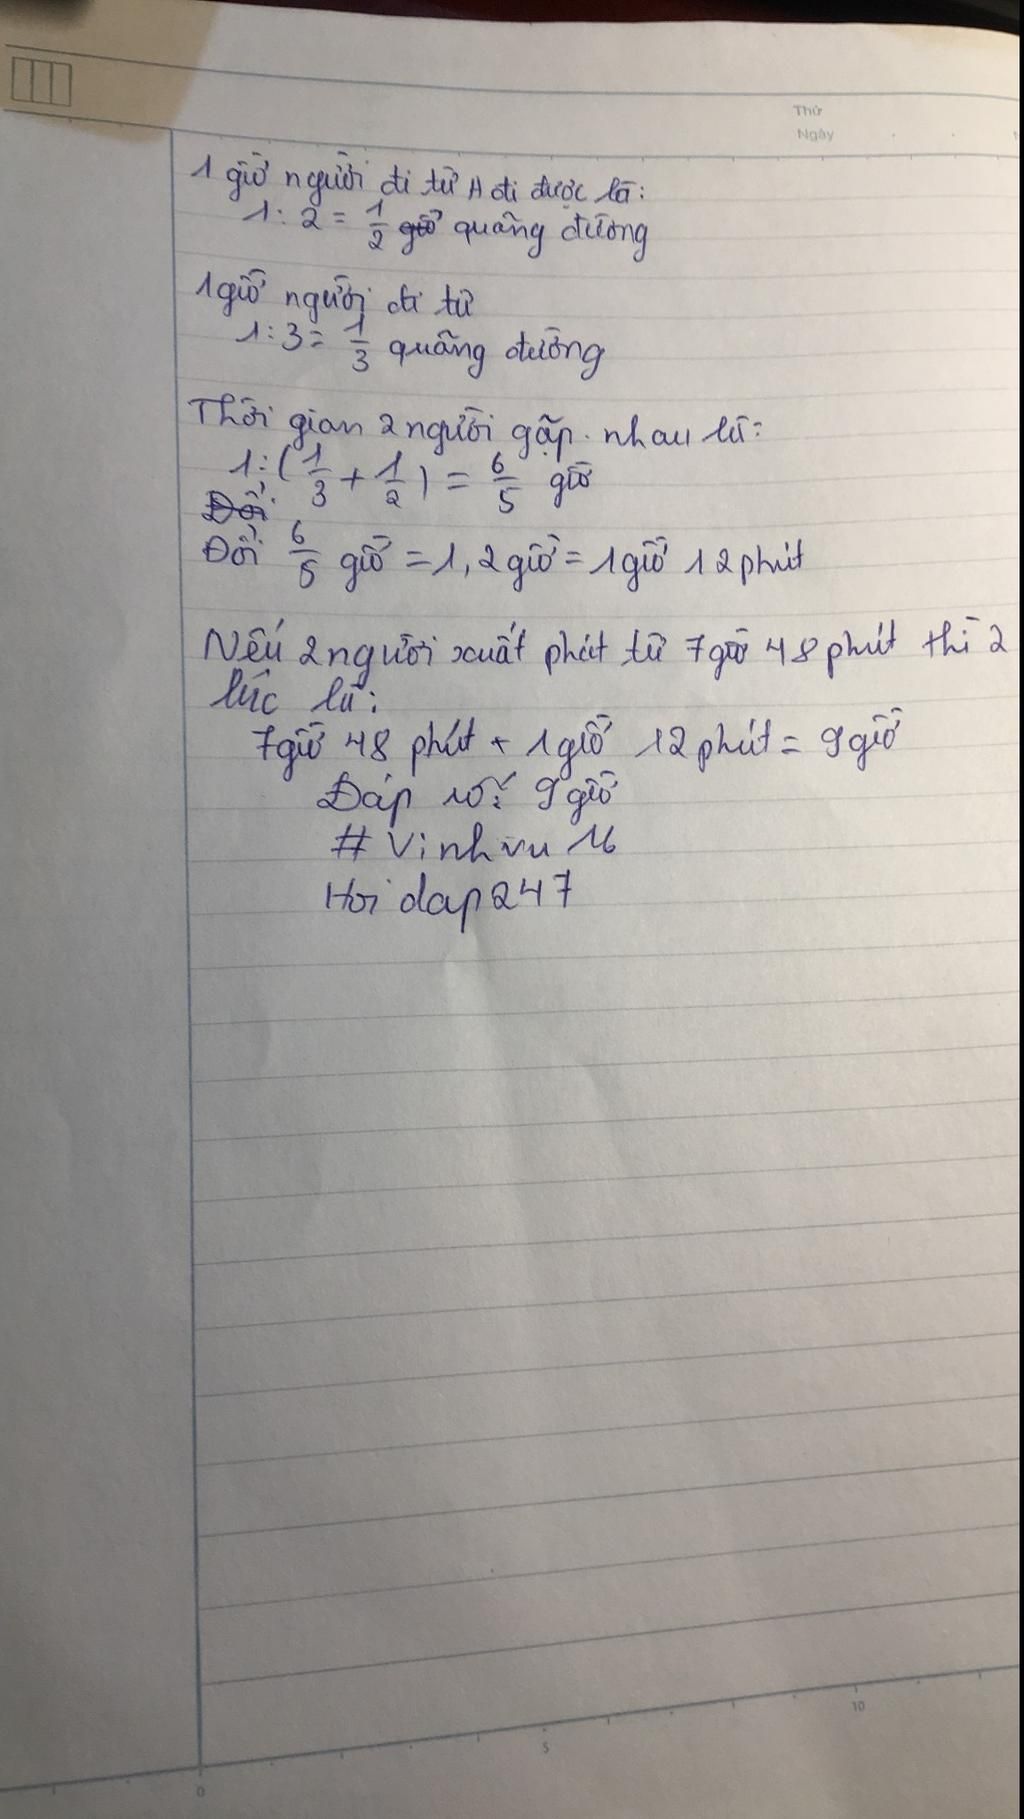 Thứ
Ngày
1 giờ người đi từ A đi được là:
1 : 2 = 1/2 giờ quãng đường
1 giờ người đi từ
1 : 3 = 1/3 quãng đường
Thời gian 2 người gặp nhau là:
1 : ( 1/3 + 1/2 ) = 6/5 giờ
Đổi
Đổi 6/5 giờ = 1,2 giờ = 1 giờ 12 phút
Nếu 2 người xuất phát từ 7 giờ 48 phút thì 2
lúc là:
7 giờ 48 phút + 1 giờ 12 phút = 9 giờ
Đáp số: 9 giờ
# Vinhvu 16
Hoi dap 247
0 5 10